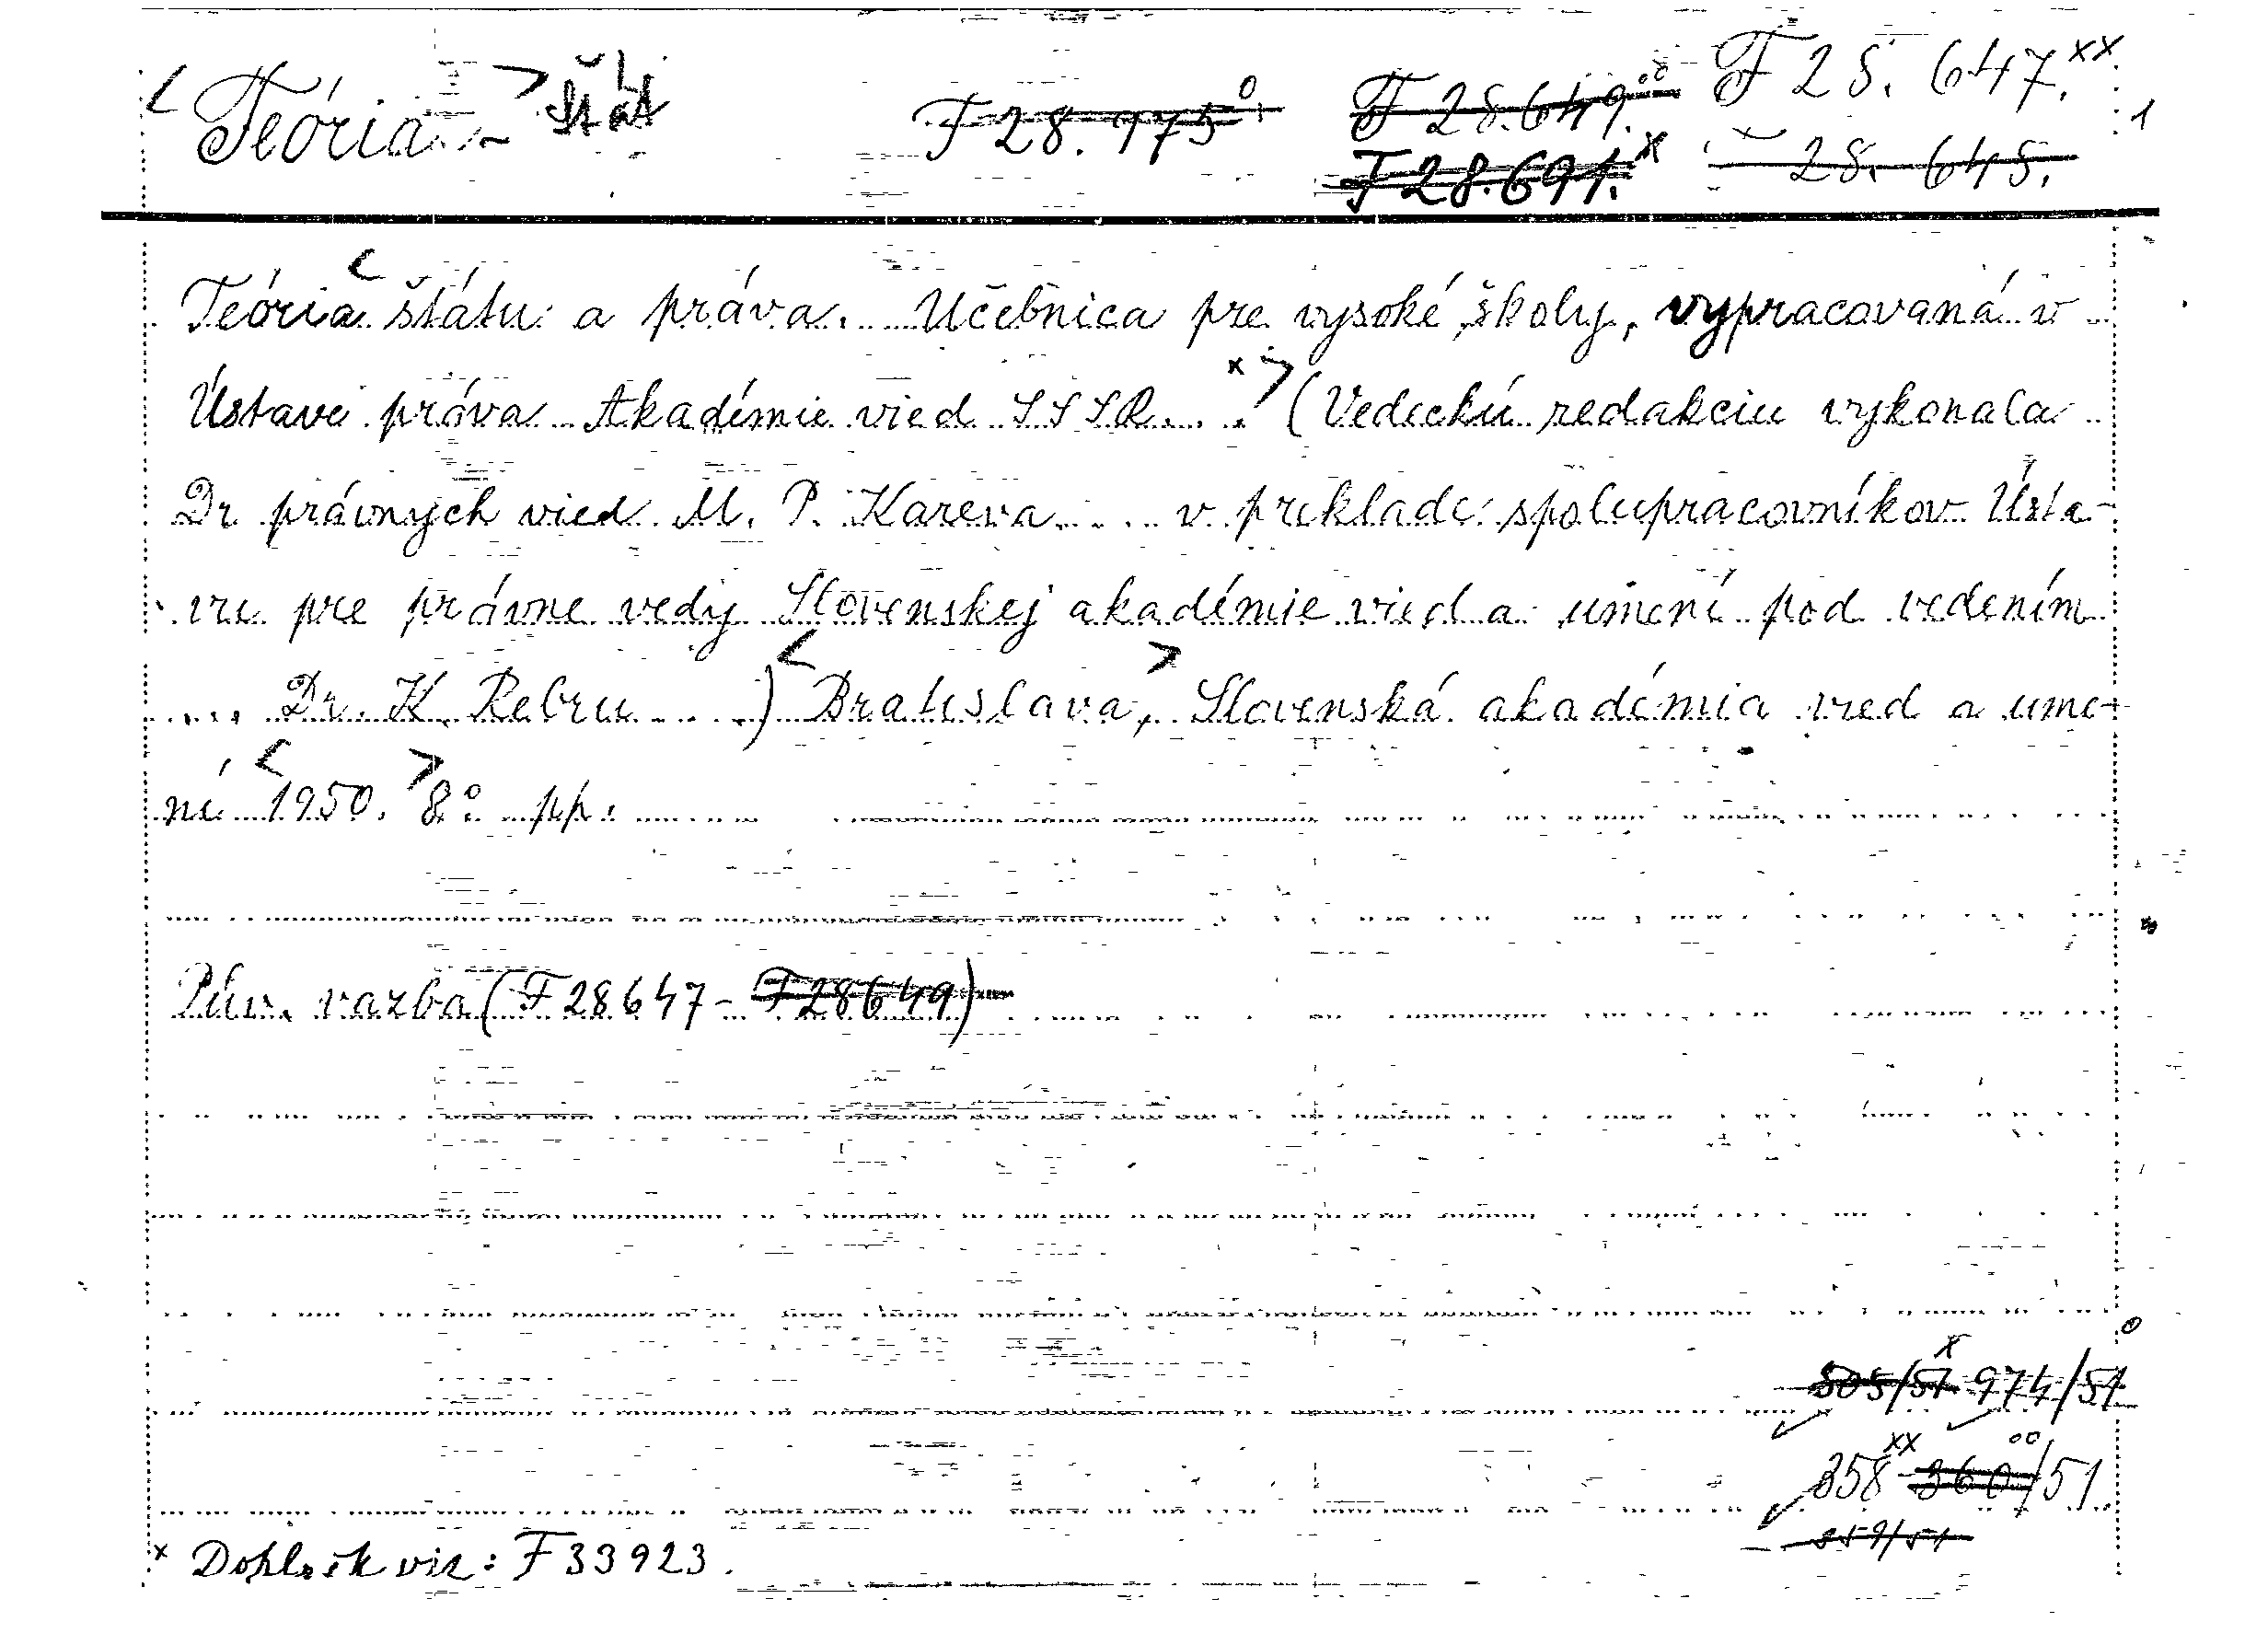 < Teória > - štát F 28.975° F 28.649.°° F 28.647.xx
F 28.691.x - 28.645. 1
Teória < štátu a práva. Učebnica pre vysoké školy, vypracovaná v
Ústave práva Akadémie vied SSSR... x > (Vedeckú redakciu vykonala
Dr právnych vied M. P. Kareva .... v preklade spolupracovníkov Ústa-
vu pre právne vedy Slovenskej akadémie vied a umení pod vedením
.... Dr. K. Rebru ....) < Bratislava, > Slovenská akadémia vied a ume-
ní < 1950. > 8° pp.
Pův. vazba (F 28647 - F 28649)
505/51 x 974/51 °
358 xx - 360 °°/51
359/51
x Doplněk viz: F 33923.